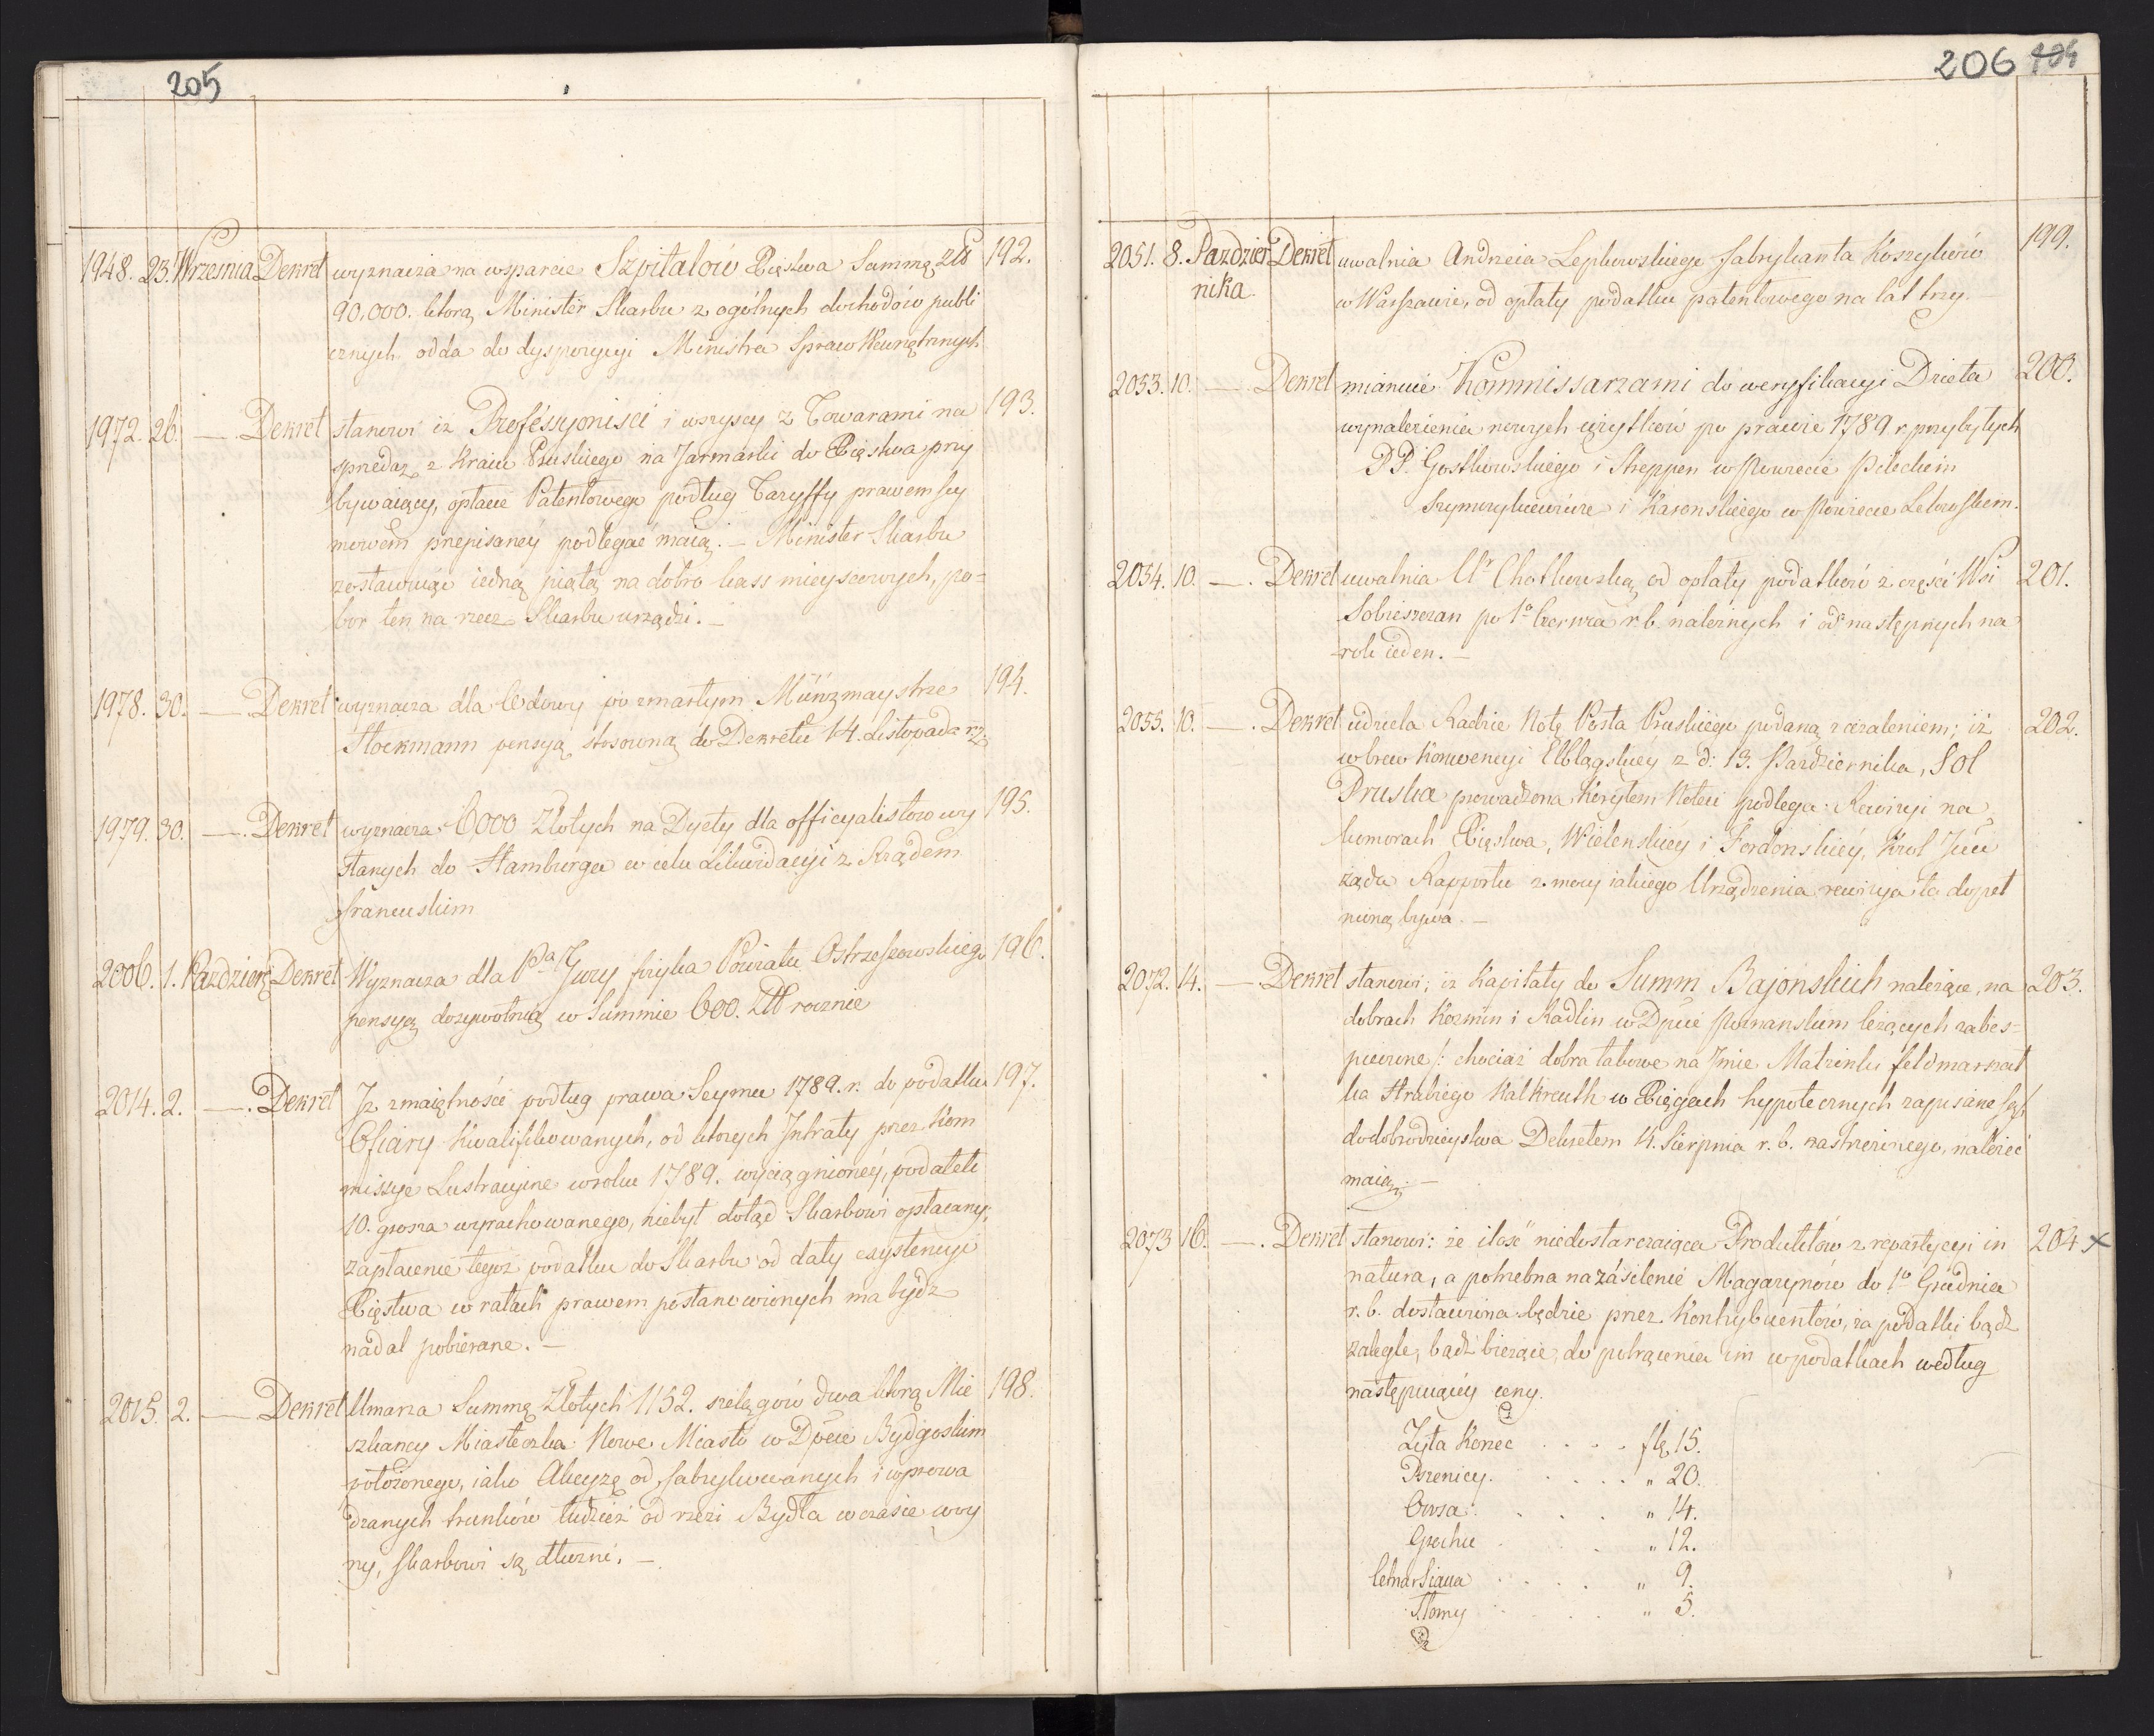 205
1948. 23. Września Dekret wyznacza na wsparcie Szpitalow Xięstwa Summę Złł 192.
90,000. którą Minister Skarbu z ogólnych dochodów publi
cznych odda do dyspozycyi Ministra Spraw Wewnętrznych
1972. 26. — Dekret stanowi iż Professyonisci i wszyscy z Towarami na 193.
sprzedaz z Kraiu Pruskiego na Jarmarki do Xięstwa przy
bywaiący, opłacie Patentowego podług Taryffy prawem Sey
mowem przepisanéy podlegać maią. — Minister Skarbu
zostawuiąc iedną piątą na dobro kass mieyscowych, po=
bor ten na rzecz Skarbu urządzi. —
1978. 30. — Dekret wyznacza dla Wdowy po zmarłym Münzmaystrze 194.
Stockmann pensyą stosowną do Dekretu 14. Listopada
1979. 30. — Dekret wyznacza 6000 Złotych na Dyety dla officyalistow wy 195.
słanych do Hamburga w celu Likwidacyi z Rządem
francuskim
2006. 1. Pazdzier Dekret Wyznacza dla Pda Jury fizyka Powiatu Ostrzeszowskiego 196.
pensyą dozywotnią w Summie 600. Złł rocznie
2014. 2. — Dekret Iz z maiętności podług prawa Seymu 1789. r. do podatku 197.
Ofiary Kwalifikowanych, od ktorych Intraty przez Kom
missye Lustracyine w roku 1789. wyciągnionéy, podatek
10. grosza wyrachowanego, niebył dotąd Skarbowi opłacany;
zapłacenie tegoż podatku do Skarbu od daty exystencyi
Xięstwa w ratach prawem postanowionych ma bydź
nadal pobierane. —
2015. 2. — Dekret Umarza Summę Złotych 1152. szelągów dwa którą Mie 198.
szkancy Miasteczka Nowe Miasto w Dpcie Bydgoskim
położonego, iako Akcyzę od fabrykowanych i wprowa
dzanych trunków tudzież od rzezi Bydła w czasie woy
ny, Skarbowi są dłużni. —
206 404
2051. 8. Pazdzier Dekret uwalnia Andrzeia Lepkowskiego fabrykanta Koszyków 199.
nika. w Warszawie, od opłaty podatku patentowego na lat trzy. —
2053. 10. — Dekret mianuie Kommissarzami do weryfikacyi Dzieła 200.
wynalezienia nowych użytków po prawie 1789 r. przybyłych
P.P. Gostkowskiego i Steppen w Powiecie Pileckim
Szymczykiewicza i Karonskiego w Powiecie Lelowskiem.
2054. 10. — Dekret uwalnia Ur Chotkowską od opłaty podatków z części Wsi 201.
Sobieszczan po 1o Czerwca r. b. należnych i od następnych na
rok ieden. —
2055. 10. — Dekret udziela Radzie Notę Posła Pruskiego podaną z czaleniem; iż 202.
wbrew Konwencyi Elblągskiéy z d: 13. Pazdziernika, Sol
Pruska prowadzona Korytem Noteci podlega Rewizyi na
komorach Xięstwa, Wielenskiéy i Fordonskiéy, Krol Jmci
żąda Rapportu z mocy iakiego Urządzenia rewizya ta dopeł
nioną bywa. —
2072. 14. — Dekret stanowi; iż Kapitały do Summ Bajońskich należące, na 203.
dobrach Kozmin i Radlin w Dpcie Poznanskim leżących zabes=
pieczone /: chociaż dobra takowe na Jmie Małzonki feldmarszał
ka Hrabiego Kalkreuth w Xięgach hypotecznych zapisane są :/
do dobrodzieystwa Dekretem 14. Sierpnia r. b. zastrzeżonego, należeć
maią. —
2073 16. — Dekret stanowi: że ilość niedostarczaiąca Produktów z repartycyi in 204 x
natura, a potrzebna na zásilenie Magazynów do 1o Grudnia
r. b. dostawiona będzie przez Kontrybuentów, za podatki bądź
zaległe, bądź bieżące, do potrącenia im w podatkach według
następuiącéy ceny.
Żyta Korzec . . . . flp. 15.
Pszenicy. . . . . " 20.
Owsa . . . . " 14.
Grochu . . . " 12.
Cetnar Siana . . . . " 9.
Słomy . . . " 5.